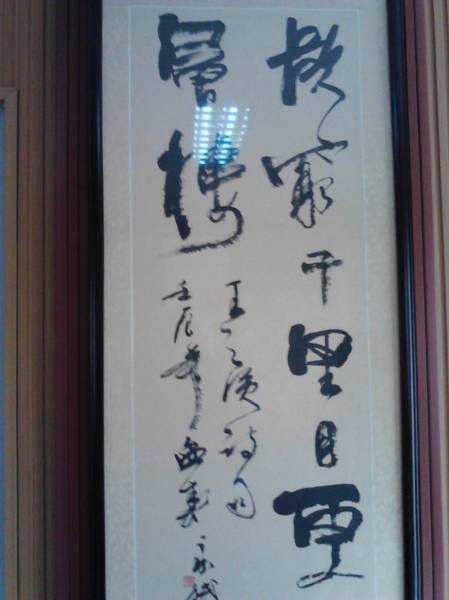 欲窮千里目更
層樓
王之渙詩句
壬辰年